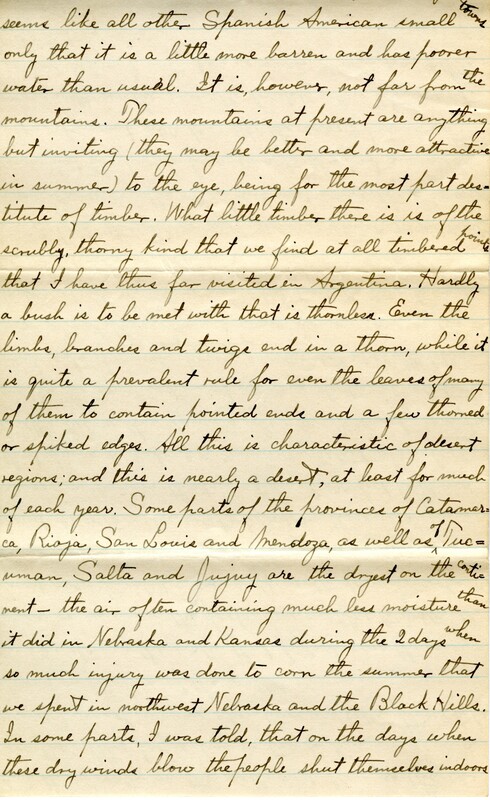 seems like all other Spanish American small towns
only that it is a little more barren and has poorer
water than usual. It is, however, not far from the
mountains. These mountains at present are anything
but inviting (they may be better and more attractive
in summer) to the eye, being for the most part des=
titute of timber. What little timber there is is of the
scrubly, thorny kind that we find at all timbered points
that I have thus far visited in Argentina. Hardly
a bush is to be met with that is thornless. Even the
limbs, branches and twigs end in a thorn, while it
is quite a prevalent rule for even the leaves of many
of them to contain pointed ends and a few thorned
or spiked edges. All this is characteristic of desert
regions; and this is nearly a desert, at least for much
of each year. Some parts of the provinces of Catamar=
ca, Rioja, San Louis and Mendoza, as well as of Tuc=
uman, Salta and Jujuy are the dryest on the conti=
nent — the air often containing much less moisture than
it did in Nebraska and Kansas during the 2 days when
so much injury was done to corn the summer that
we spent in northwest Nebraska and the Black Hills.
In some parts, I was told, that on the days when
these dry winds blow the people shut themselves indoors